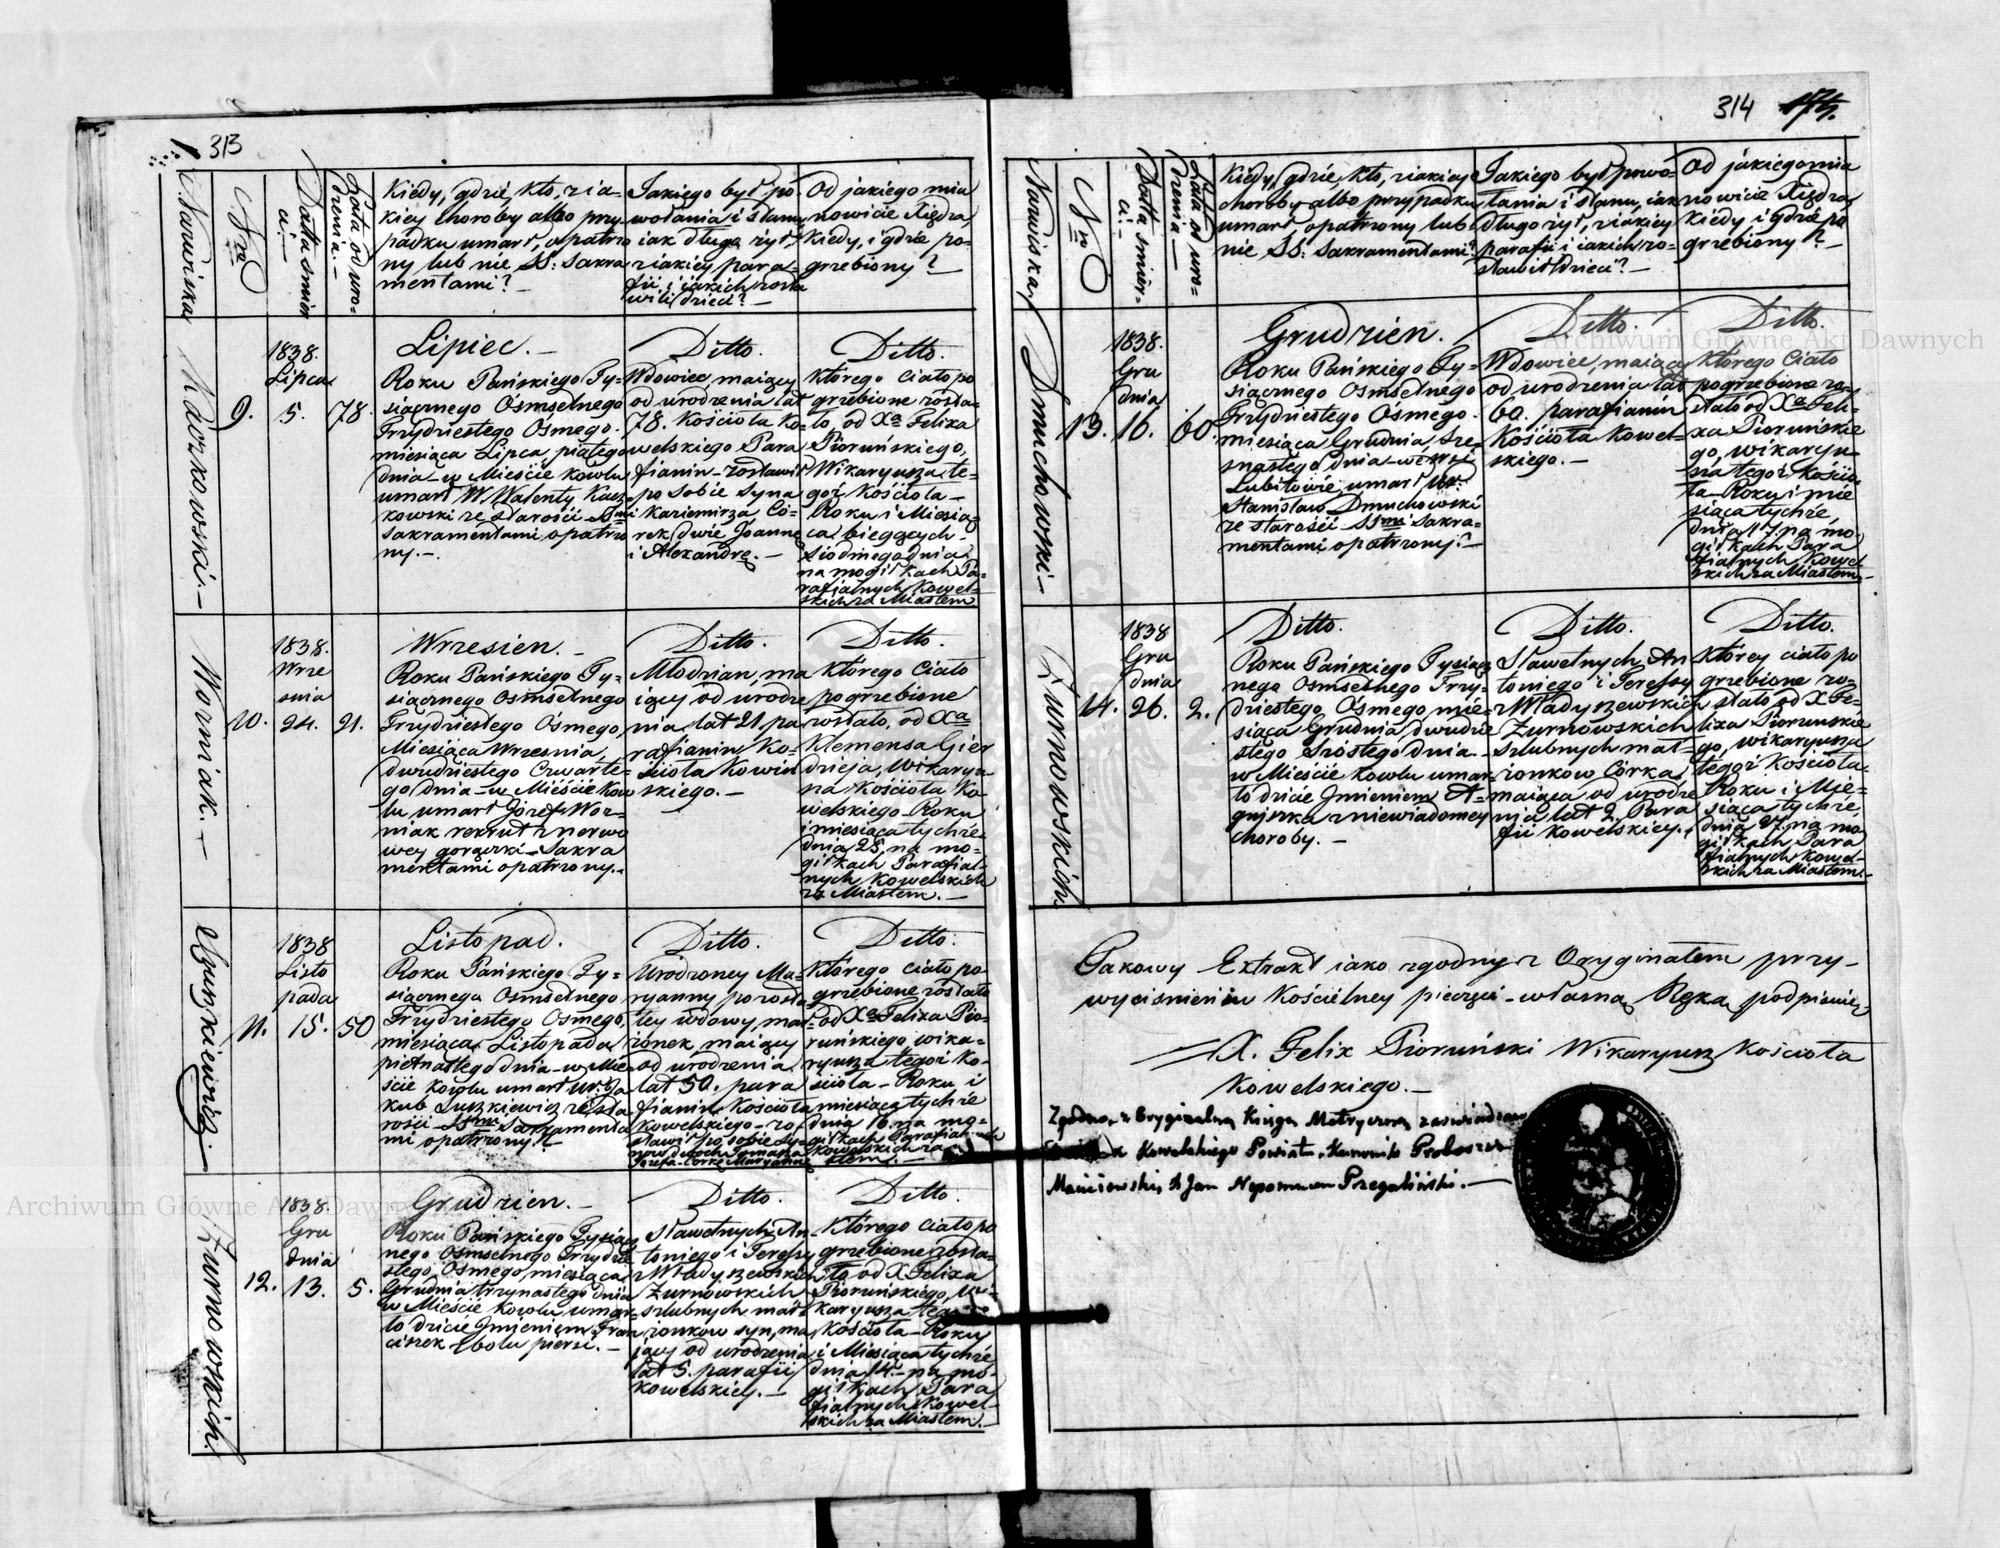 313
Nazwiska
Nro
Datta śmier
ci.—
Lata od uro-
dzenia.—
Kiédy, gdzié, kto, z ia-
kiey choroby albo przy-
padku umarł, opatrzo
ny lub nie, SS: Sakra
mentami?—
Jakiego był po
wołania i stanu
iak długo żył,
z iakiey para-
fii i iakich zosta
wił dzieci?—
Od jakiego mia
nowicie Xiędza,
kiedy, i gdzie po-
grzebiony?—
Kaczkowski.—
9.
1838.
Lipca
5.
78.
Lipiec.—
Roku Pańskiego Ty-
siącznego Osmsetnego
Trzydziestego Osmego.
miesiąca Lipca, piątego
dnia—w Mieście Kowlu
umarł W. Walenty Kacz
kowski ze starości SSmi
Sakramentami opatrzo
ny.—
Ditto.
Wdowiec, maiący
od urodzenia lat
78. Kościoła Ko-
welskiego Para
fianin—zostawił
po sobie syna
Kazimirza Co-
rek dwie Joannę
i Alexandrę.—
Ditto.
Którego Ciało po
grzebione zosta-
ło, od Xa Felixa
Pioruńskiego,
Wikaryusza te-
goż Kościoła—
Roku i Miesią-
ca bieżących
siodmego dnia
na mogiłkach Pa-
rafialnych Kowel-
skich za Miastem
Worniak.—
10.
1838.
Wrze
snia
24.
21.
Wrzesien.—
Roku Pańskiego Ty-
siącznego Osmsetnego
Trzydziestego Osmego,
Miesiąca Wrzesnia
dwudziestego Czwarte-
go dnia—w Mieście Kow
lu umarł Józef Wor-
niak rekrut z nerwo
wey gorączki—Sakra
mentami opatrzony.—
Ditto.
Młodzian, ma
iący od urodze
nia lat 21. pa
rafianin Ko-
scioła Kowel
skiego.—
Ditto.
Którego Ciało
pogrzebione
zostało, od Xa
Klemensa Gier
dzieja, Wikaryu
sza Kościoła Ko
welskiego—Roku
i miesiąca tychże
dnia 25. na mo-
giłkach Parafial-
nych Kowelskich
za Miastem.—
Łuszkiewicz.—
11.
1838
Listo
pada
15.
50
Listopad.
Roku Pańskiego Ty-
siącznego Osmsetnego
Trzydziestego Osmego,
miesiąca Listopada
pietnastego dnia—w Mie
ście Kowlu umarł Ur. Ja
kub Łuszkiewicz ze sta
rości—SSmi Sakramenta
mi opatrzony.
Ditto.
Urodzoney Ma-
ryanny pozosta
łey wdowy, mał
żonek, maiący
od urodzenia
lat 50. para
fianin Kościoła
Kowelskiego—zo
stawił po sobie sy-
now dwoch Tomasza
Józefa—Corkę Maryannę
Ditto.
Którego Ciało po
grzebione zostało
od Xa Felixa Pio-
ruńskiego wika-
ryusza tegoż Ko-
ścioła—Roku i
miesiąca tychże
dnia 16. na mo-
giłkach Parafial
Kowelskich za
stem.—
Żurnowskich
12.
1838.
Gru
dnia
13.
5.
Grudzien.—
Roku Pańskiego Tysiącz
nego Osmsetnego Trzydzie
stego Osmego, miesiąca
Grudnia trzynastego dnia
w Mieście Kowlu umar-
ło dzicie Jmieniem Fran
ciszek z bolu piersi.—
Ditto.
Sławetnych An-
toniego i Teressy
z Władyszewskich
Żurnowskich
szlubnych mał
żonkow syn, ma
jący od urodzenia
lat 5. parafii
Kowelskiey.—
Ditto.
Którego ciało po
grzebione zosta-
ło od X Felixa
Pioruńskiego, Wi
karyusza tego
Kościoła—Roku
i Miesiąca tychże
dnia 14—na mo-
giłkach Para
fialnych Kowel-
skich za Miastem.—
314
Nazwiska
Nro
Datta śmier-
ci.
Lata od uro-
dzenia—
Kiédy, gdzié, kto, z iakiey
choroby albo przypadku
umarł, opatrzony lub
nie SS: Sakramentami?
Jakiego był powo-
łania i stanu, iak
długo żył, z iakiey
parafii i iakich zo-
stawił dzieci?—
Od jakiego mia
nowicie Xiędza
kiédy i gdzie po
grzebiony?—
Dmuchowski—
13.
1838.
Gru
dnia
16.
60.
Grudzien.
Roku Pańskiego Ty-
siącznego Osmsetnego
Trzydziestego Osmego
miesiąca Grudnia Sze-
snastego dnia—we wsi
Lubitowie, umarł Ur:
Stanisław Dmuchowski
ze starości SSmi Sakra-
mentami opatrzony.—
Ditto.
Wdowiec, maiący
od urodzenia lat
60. parafianin
Kościoła Kowel-
skiego.—
Ditto.
Którego Ciało
pogrzebione zo-
stało od Xa Feli-
xa Pioruńskie
go, wikaryu
sza tegoż Kościo-
ła—Roku i mie
siąca tychże,
dnia 17. na mo-
giłkach Para
fialnych Kowel
skich za Miastem.—
Żurnowskich
14.
1838
Gru
dnia
26.
2.
Ditto.
Roku Pańskiego Tysiącz
nego Osmsetnego Trzy-
dziestego Osmego mie-
siąca Grudnia dwudzie
stego szóstego dnia
w Mieście Kowlu umar-
ło dzicie Jmieniem A-
gnjszka z niewiadomey
choroby.—
Ditto.
Sławetnych An
toniego i Teressy
z Władyszewskich
Żurnowskich
szlubnych mał-
żonkow Córka,
maiąca od urodze
nia lat 2. Para
fii Kowelskiey.
Ditto.
Którey ciało po
grzebione zo-
stało od X Fe-
lixa Pioruńskie
go, wikaryusza
tegoż Kościoła
Roku i Mie-
siąca tychże
dnia 27. na mo
giłkach Para
fialnych Kowel-
skich za Miastem.—
Takowy Extrakt iako zgodny z Oryginałem przy-
wyciśnieniu Kościelney pieczęci—własną Ręką podpisuię
X. Felix Pioruński Wikaryusz Kościoła
Kowelskiego.—
Zgodno z Oryginalną Księgą Metryczną zaświadczam
Kowelskiego Powiatu, Kanonik Proboszcz
Maciiewski, X Jan Nepomucen Przegaliński.—
Archiwum Główne Akt Dawnych
Archiwum Główne Akt Dawnych